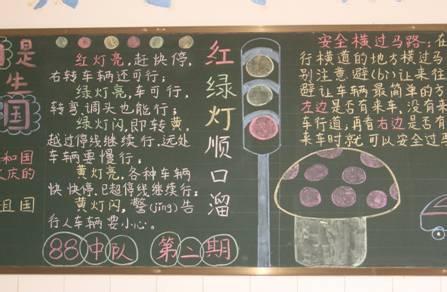 是
生
国
和国
庆的
且国
红灯亮,赶快停,
右转车辆还可行;
绿灯亮,车可行,
转弯调头也能行;
绿灯闪,即转黄,
越过停线继续行,远处
车辆要慢行,
黄灯亮,各种车辆
快快停,已超停线继续行;
黄灯闪,警(jǐng)告
行人车辆要小心。
88中队 第二期
红绿灯顺口溜
安全横过马路:在
行横道的地方横过马
别注意避(bì)让来往
避让车辆最简单的方
左边是否有来车,没有来
车行道;再看右边是否有
来车时就可以安全过